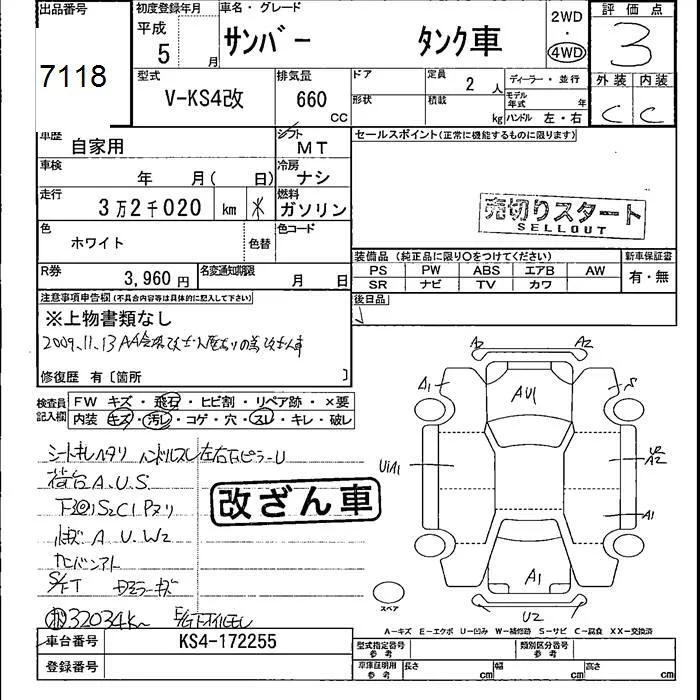 出品番号
7118
初度登録年月
平成
5 月
車名・グレード
サンバー タンク車
2WD
・
4WD
評価点
3
外装 内装
C C
型式
V-KS4改
排気量
660 CC
ドア
形状
定員
2 人
積載
kg
ディーラー・並行
モデル年式 年
ハンドル 左・右
車歴
自家用
シフト
MT
車検
年 月( 日)
冷房
ナシ
走行
3万2千020 km
燃料
ガソリン
色
ホワイト
色替
色コード
R券
3,960 円
名変通知期限
月 日
セールスポイント(正常に機能するものに限ります)
売切りスタート
SELLOUT
装備品 (純正品に限り○をつけてください)
PS PW ABS エアB AW
SR ナビ TV カワ
新車保証書
有・無
後日品
注意事項申告欄(不具合内容等は具体的に記入して下さい)
※上物書類なし
2009.11.13
修復歴 有〔箇所 〕
検査員記入欄
FW キズ・飛石・ヒビ割・リペア跡・×要
内装・キズ・汚レ・コゲ・穴・スレ・キレ・破レ
シートキレヘタリ ハンドルスレ 左右ピラーU
荷台A.U.S.
下回りS2C1Pヌリ
A U.W2
S/FT
32034K
改ざん車
A2 A2
A1
AU1
S
UiA1
U2
A2
A1
A1
U2
スペア
A-キズ E-エクボ U-凹み W-補修跡 S-サビ C-腐食 XX-交換済
車台番号
KS4-172255
登録番号
型式指定番号
参考
類別区分番号
参考
車庫証明用
参考
長さ cm 幅 cm 高さ cm